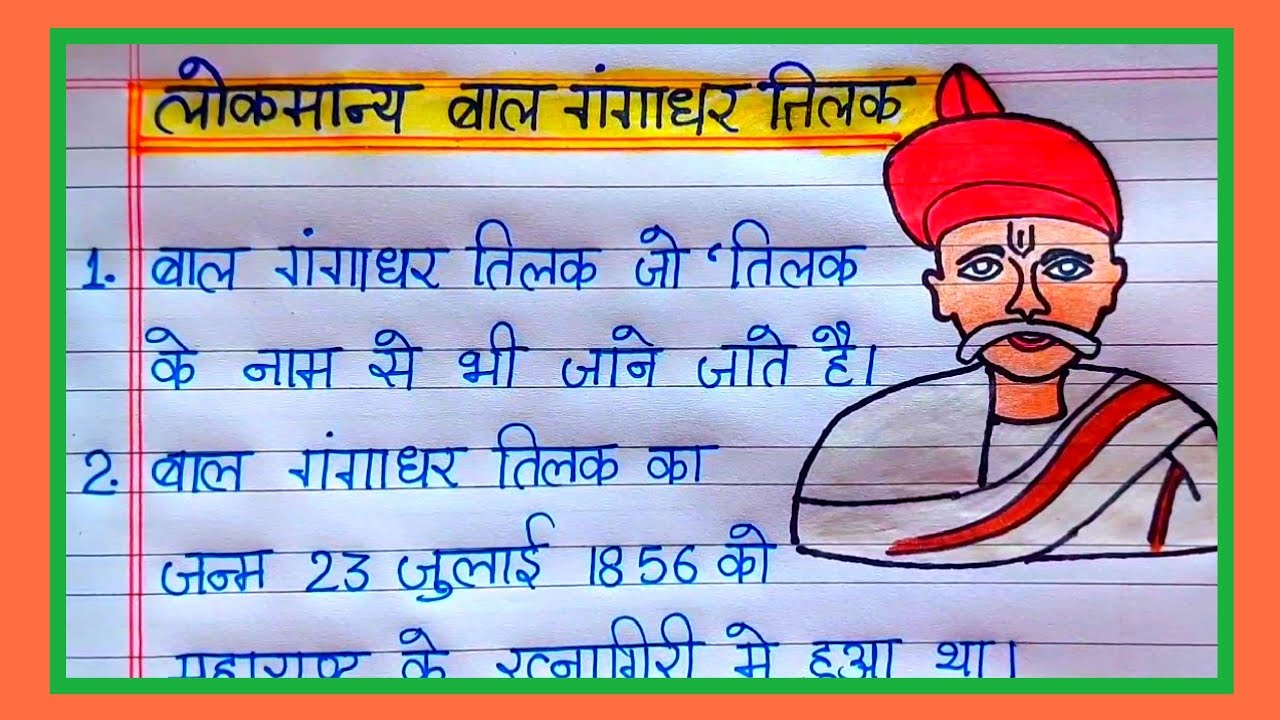 लोकमान्य बाल गंगाधर तिलक
1. बाल गंगाधर तिलक जो ‘तिलक
के नाम से भी जाने जाते है।
2. बाल गंगाधर तिलक का
जन्म 23 जुलाई 1856 को
महाराष्ट्र के रत्नागिरी मे हुआ था।